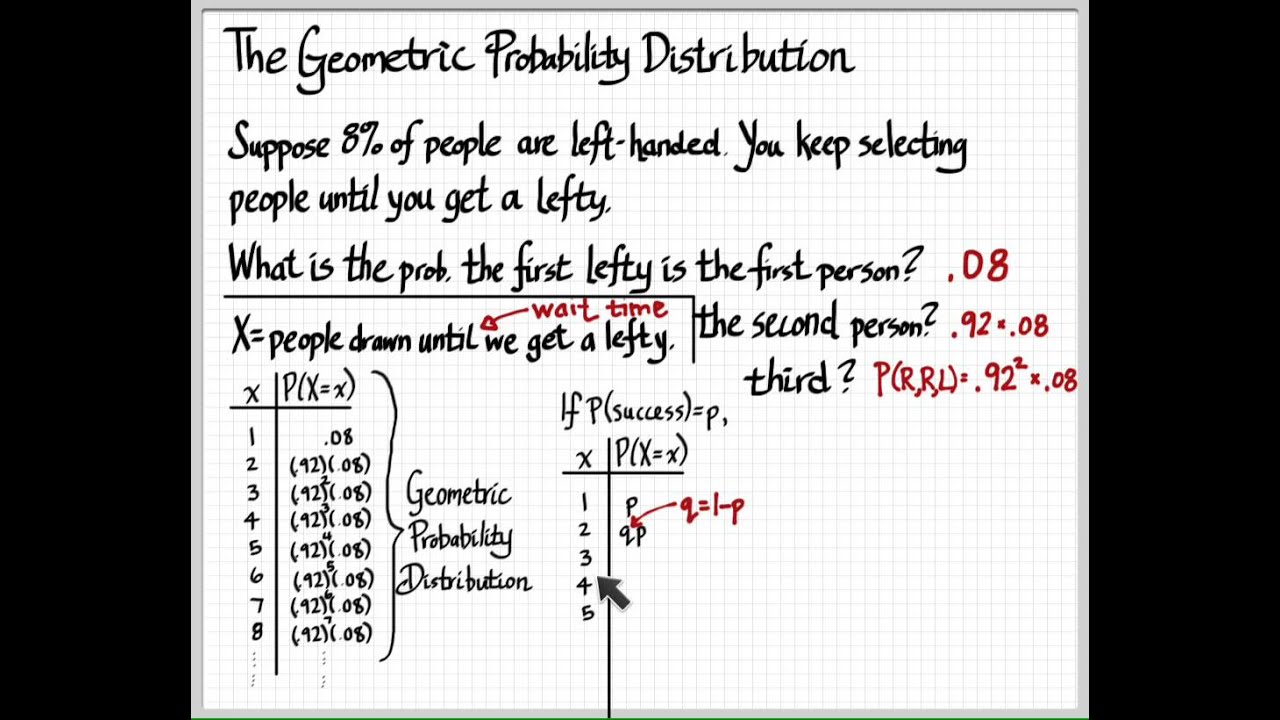 The Geometric Probability Distribution
Suppose 8% of people are left-handed. You keep selecting
people until you get a lefty.
What is the prob. the first lefty is the first person? .08
the second person? .92 × .08
third? P(R,R,L) = .92² × .08
wait time
X = people drawn until we get a lefty.
x P(X=x)
1 .08
2 (.92)(.08)
3 (.92)²(.08)
4 (.92)³(.08)
5 (.92)⁴(.08)
6 (.92)⁵(.08)
7 (.92)⁶(.08)
8 (.92)⁷(.08)
⋮ ⋮
Geometric
Probability
Distribution
If P(success)=p,
x P(X=x)
1 p
q=1-p
2 qp
3
4
5